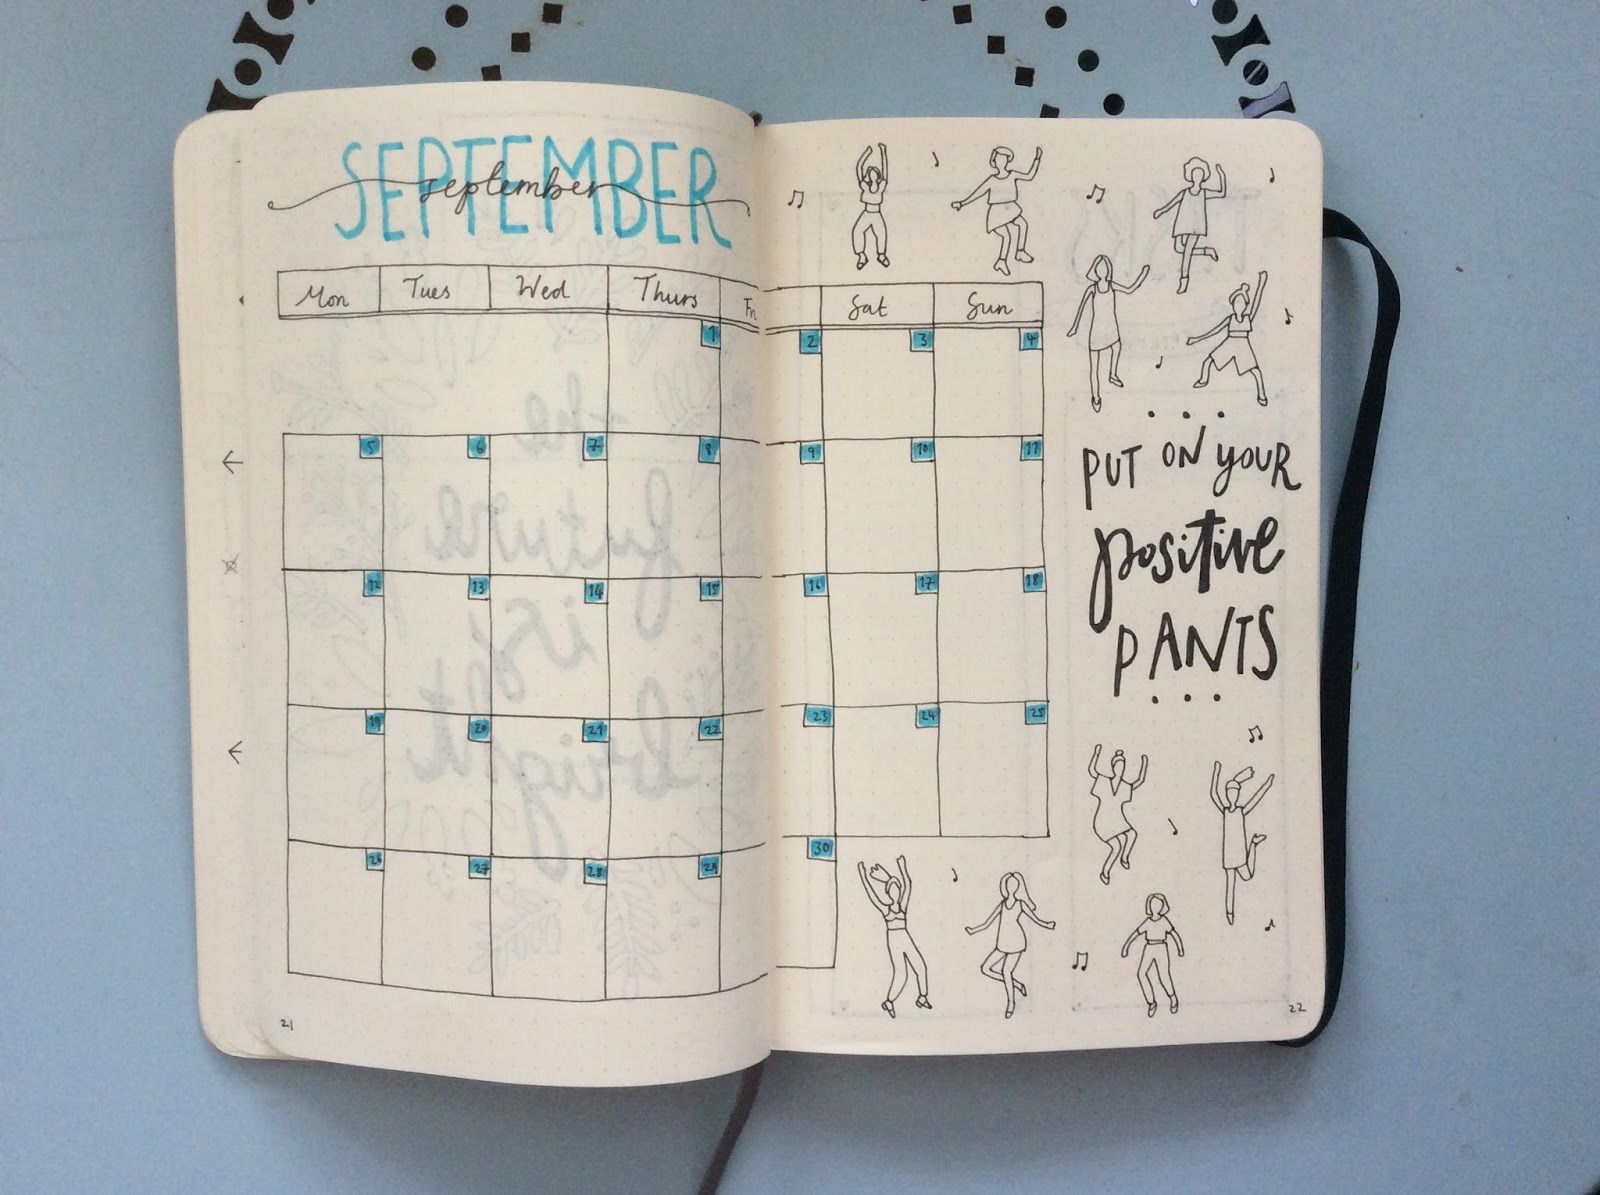 SEPTEMBER
september
Mon Tues Wed Thurs Fri Sat Sun
1 2 3 4
5 6 7 8 9 10 11
12 13 14 15 16 17 18
19 20 21 22 23 24 25
26 27 28 29 30
PUT ON YOUR
positive
PANTS
21
22
the
future
is
bright
TASKS